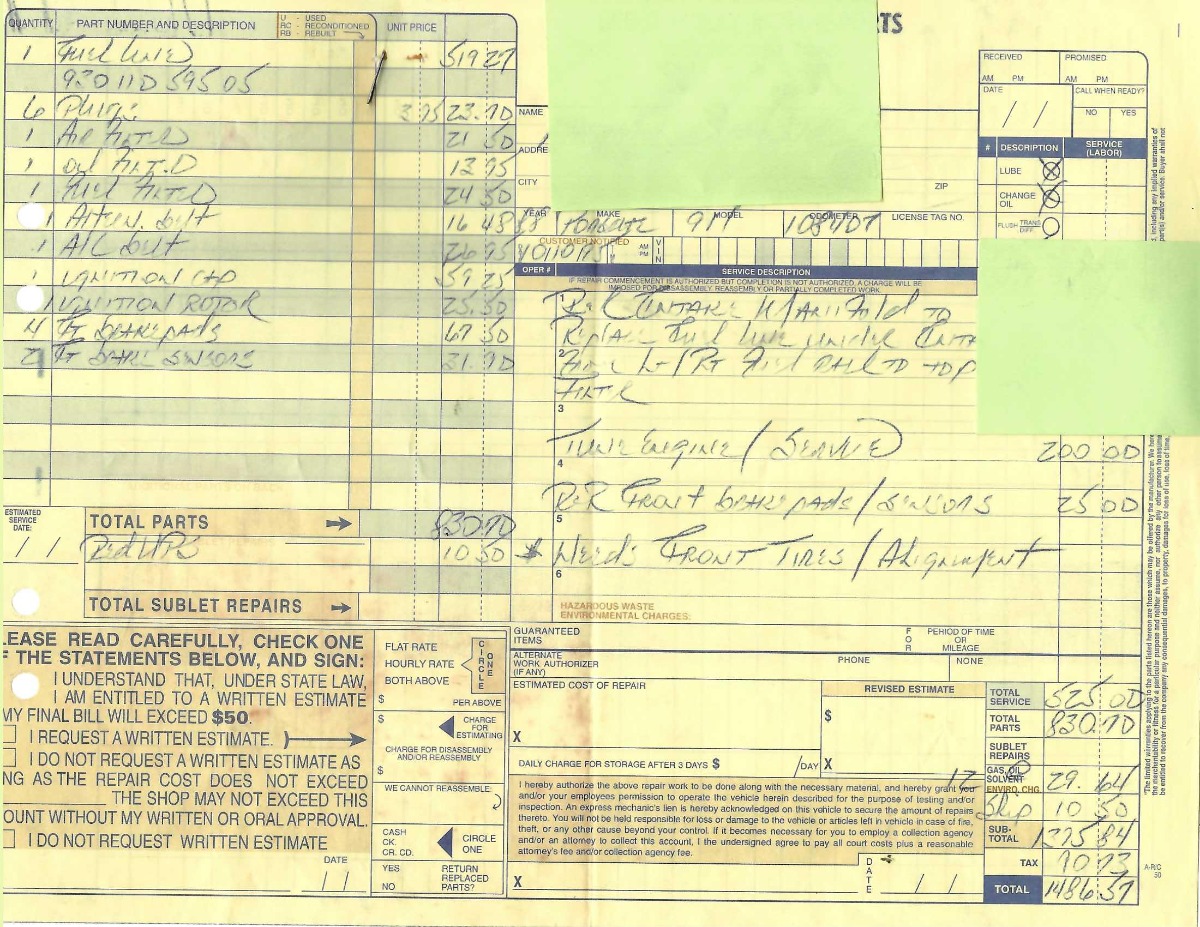 QUANTITY PART NUMBER AND DESCRIPTION U - USED RC - RECONDITIONED RB - REBUILT UNIT PRICE
1 Fuel line 519 27
930 110 595 05
6 Plugs 3 95 23.70
1 Air Filter 21 50
1 oil Filter 12 95
1 Fuel Filter 24 50
1 Altern. belt 16 48
1 A/C belt 26 95
1 IGNITION CAP 59 25
1 IGNITION ROTOR 25.50
4 Ft brake pads 67 50
2 Ft brake sensors 31.90
TOTAL PARTS 830.70
10 50
TOTAL SUBLET REPAIRS
ESTIMATED SERVICE DATE:
/ /
RTS
NAME
ADDRE
CITY
ZIP
RECEIVED PROMISED
AM PM AM PM
DATE CALL WHEN READY?
/ / NO YES
# DESCRIPTION SERVICE (LABOR)
LUBE
CHANGE OIL
FLUSH TRANS DIFF.
YEAR MAKE MODEL ODOMETER LICENSE TAG NO.
88 Porsche 911 108707
CUSTOMER NOTIFIED AM PM VIN
OPER # SERVICE DESCRIPTION
IF REPAIR COMMENCEMENT IS AUTHORIZED BUT COMPLETION IS NOT AUTHORIZED, A CHARGE WILL BE
IMPOSED FOR DISASSEMBLY, REASSEMBLY OR PARTIALLY COMPLETED WORK.
1 R&R INTAKE MANIFOLD TO
Replace fuel line under Inta
2 From L+/Rt Fuel rail to top
Filter
3
Tune Engine / Service 200 00
4
R&R Front brake pads / sensors 25 00
5
* Needs FRONT TIRES / Alignment
6
HAZARDOUS WASTE
ENVIRONMENTAL CHARGES:
LEASE READ CAREFULLY, CHECK ONE
F THE STATEMENTS BELOW, AND SIGN:
I UNDERSTAND THAT, UNDER STATE LAW,
I AM ENTITLED TO A WRITTEN ESTIMATE
MY FINAL BILL WILL EXCEED $50.
I REQUEST A WRITTEN ESTIMATE.
I DO NOT REQUEST A WRITTEN ESTIMATE AS
NG AS THE REPAIR COST DOES NOT EXCEED
THE SHOP MAY NOT EXCEED THIS
OUNT WITHOUT MY WRITTEN OR ORAL APPROVAL.
I DO NOT REQUEST WRITTEN ESTIMATE
DATE
/ /
FLAT RATE
HOURLY RATE
BOTH ABOVE
CIRCLE ONE
$ PER ABOVE
$ CHARGE FOR ESTIMATING
CHARGE FOR DISASSEMBLY
AND/OR REASSEMBLY
$
WE CANNOT REASSEMBLE:
CASH
CK.
CR. CD.
CIRCLE ONE
YES RETURN
NO REPLACED PARTS?
GUARANTEED ITEMS FOR PERIOD OF TIME OR MILEAGE
ALTERNATE WORK AUTHORIZER (IF ANY) PHONE NONE
ESTIMATED COST OF REPAIR REVISED ESTIMATE
$
X
DAILY CHARGE FOR STORAGE AFTER 3 DAYS $ /DAY X
I hereby authorize the above repair work to be done along with the necessary material, and hereby grant you
and/or your employees permission to operate the vehicle herein described for the purpose of testing and/or
inspection. An express mechanic's lien is hereby acknowledged on this vehicle to secure the amount of repairs
thereto. You will not be held responsible for loss or damage to the vehicle or articles left in vehicle in case of fire,
theft, or any other cause beyond your control. If it becomes necessary for you to employ a collection agency
and/or an attorney to collect this account, I the undersigned agree to pay all court costs plus a reasonable
attorney's fee and/or collection agency fee.
X DATE / /
TOTAL SERVICE 525 00
TOTAL PARTS 830.70
SUBLET REPAIRS
GAS, OIL SOLVENT ENVIRO. CHG. 29.64
Ship 10 50
SUB-TOTAL
TAX
TOTAL 1486.57
A-R/C
50